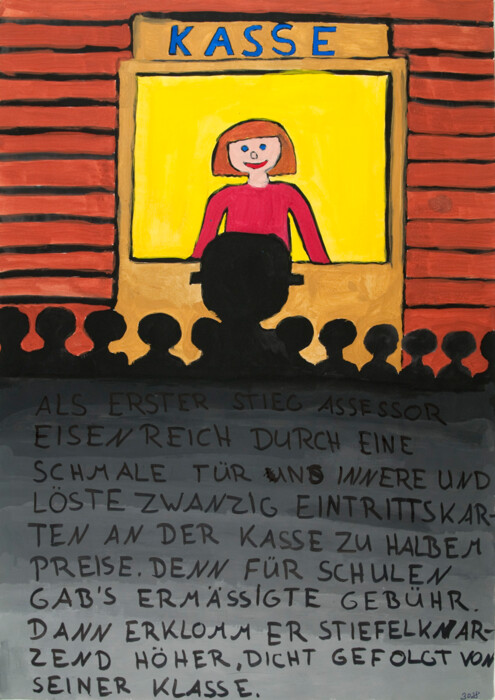 KASSE
ALS ERSTER STIEG ASSESSOR
EISENREICH DURCH EINE
SCHMALE TÜR UNS INNERE UND
LÖSTE ZWANZIG EINTRITTSKAR-
TEN AN DER KASSE ZU HALBEM
PREISE. DENN FÜR SCHULEN
GAB'S ERMÄSSIGTE GEBÜHR.
DANN ERKLOMM ER STIEFELKNAR-
ZEND HÖHER, DICHT GEFOLGT VON
SEINER KLASSE.